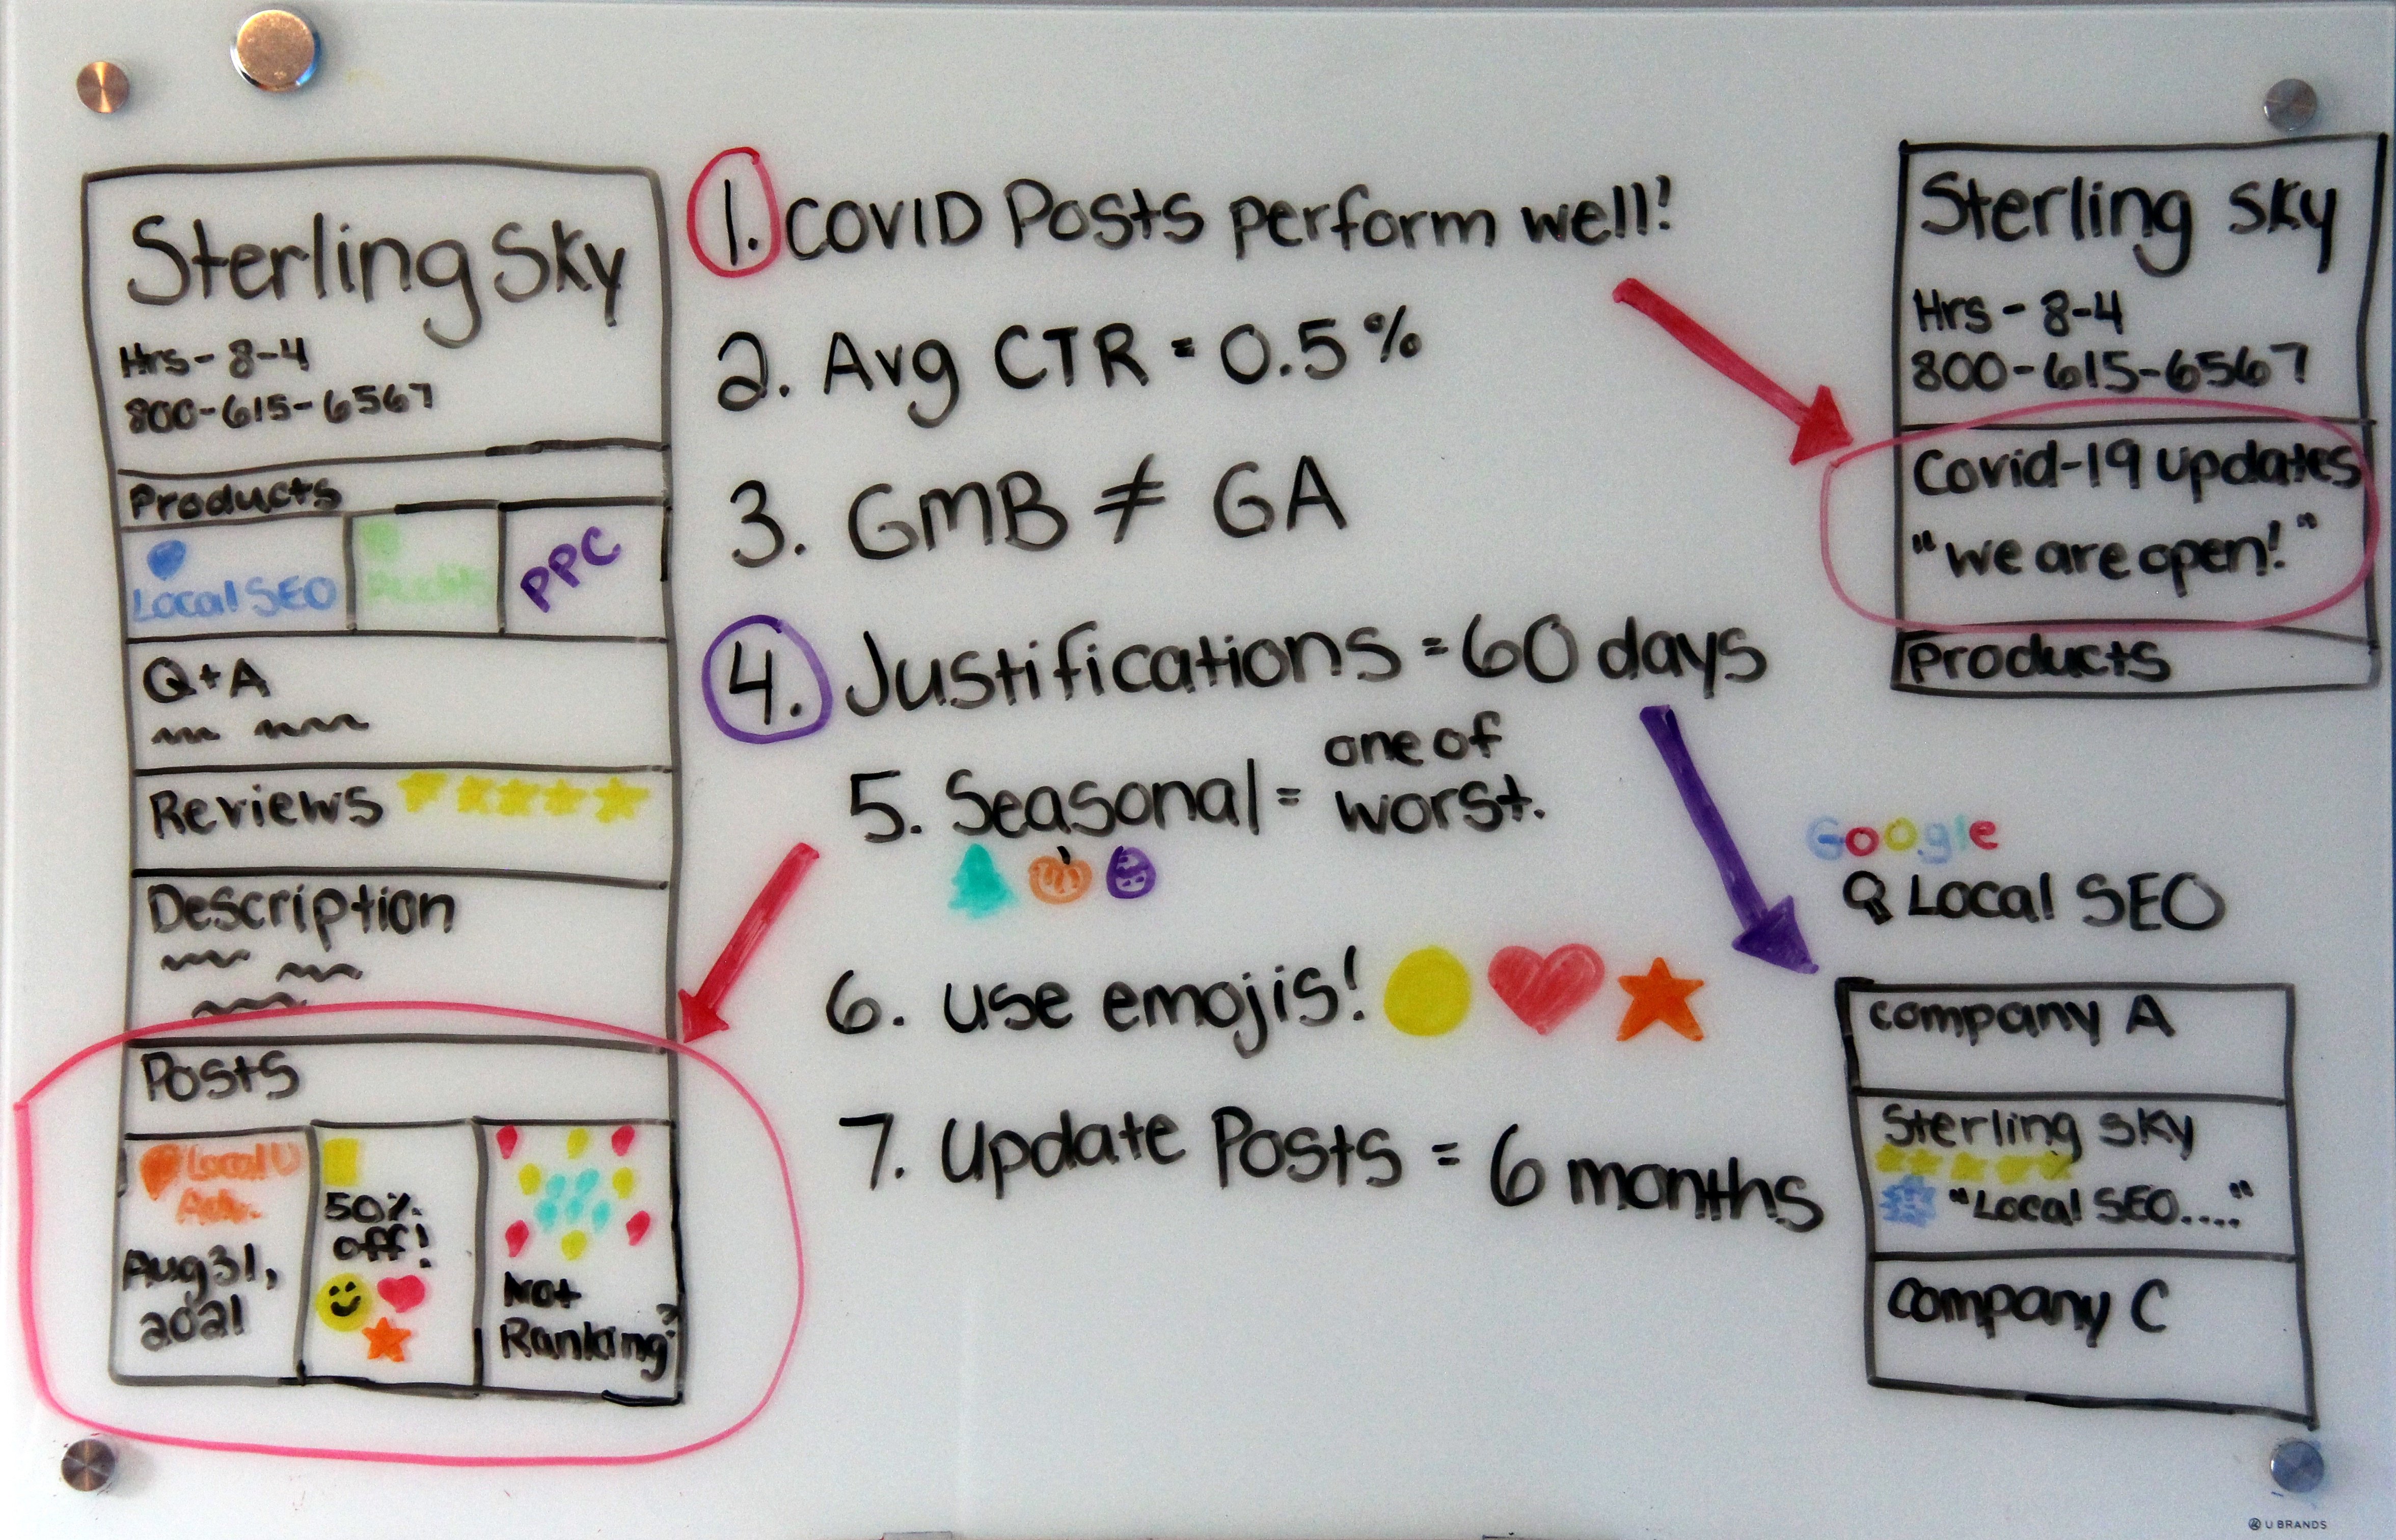 Sterling Sky
Hrs - 8-4
800-615-6567
Products
Local SEO
Audits
PPC
Q+A
Reviews
Description
Posts
Local U
Adv.
Aug 31,
2021
50%
off!
Not
Ranking?
1. COVID Posts perform well!
2. Avg CTR = 0.5%
3. GMB ≠ GA
4. Justifications = 60 days
5. Seasonal = one of
worst.
6. use emojis!
7. Update Posts = 6 months
Sterling Sky
Hrs - 8-4
800-615-6567
Covid-19 updates
"we are open!"
Products
Google
Local SEO
Company A
Sterling Sky
"Local SEO...."
Company C
U BRANDS